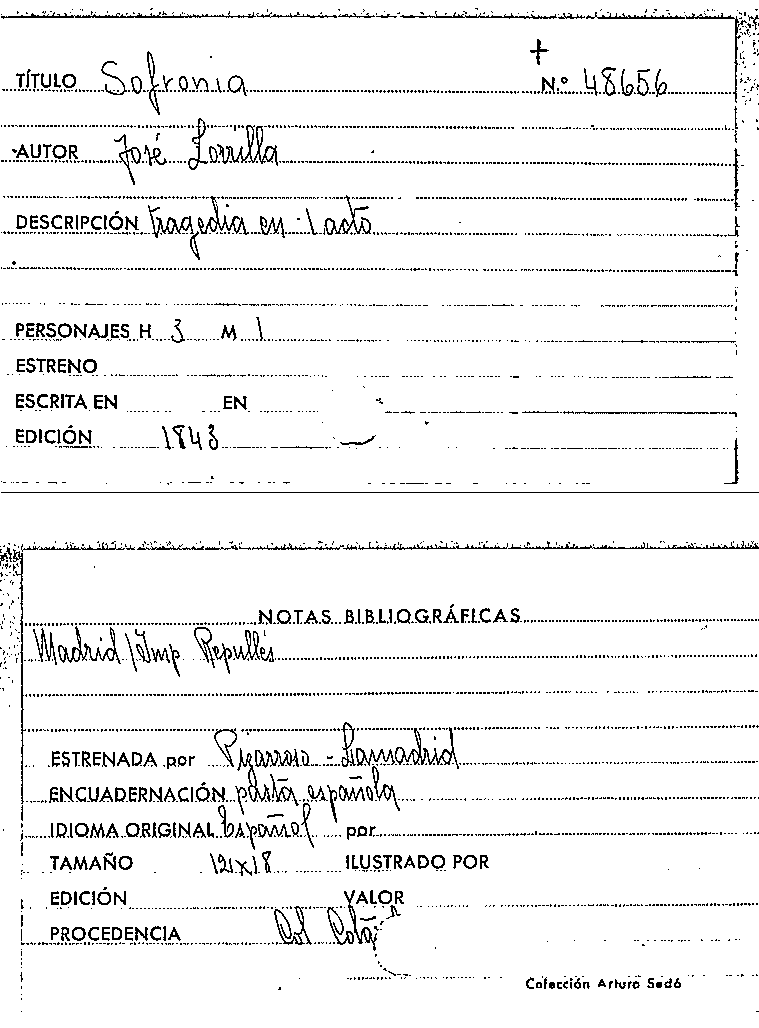 +
TÍTULO Sofronia N.º 48656
AUTOR José Zorrilla
DESCRIPCIÓN tragedia en 1 acto
PERSONAJES H 3 M 1
ESTRENO
ESCRITA EN EN
EDICIÓN 1843
NOTAS BIBLIOGRÁFICAS
Madrid / Imp Repullés
ESTRENADA por Pizarroso - Lamadrid
ENCUADERNACIÓN pasta española
IDIOMA ORIGINAL Español por
TAMAÑO 12x18 ILUSTRADO POR
EDICIÓN VALOR
PROCEDENCIA Col
Colección Arturo Sedó